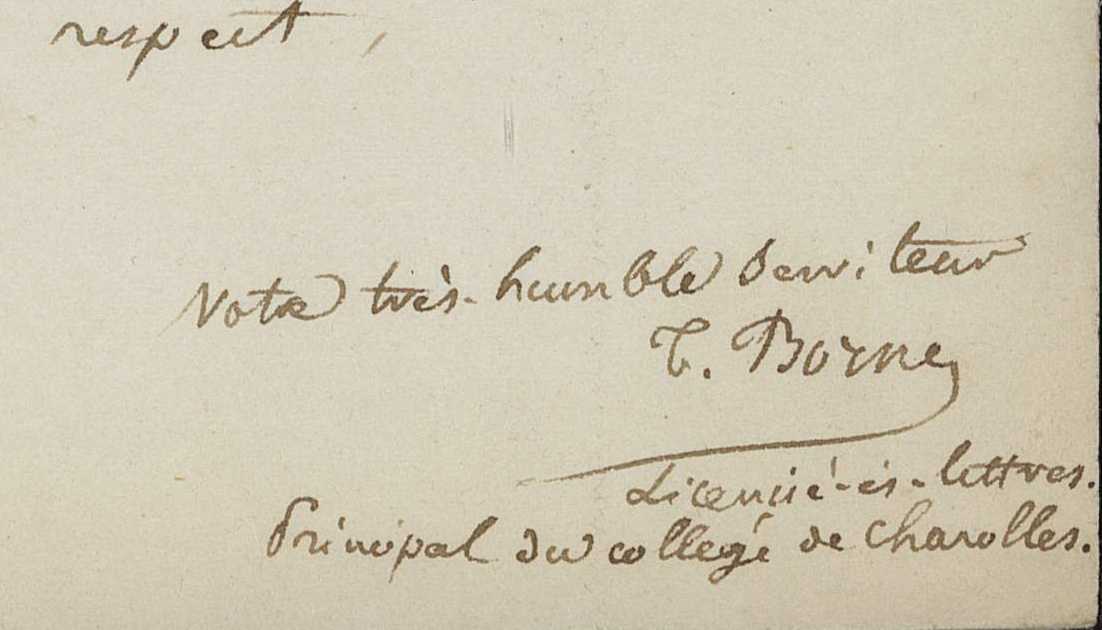 respect,
Votre très-humble serviteur
T. Borne
Licencié-ès-lettres.
Principal du collegé de Charolles.